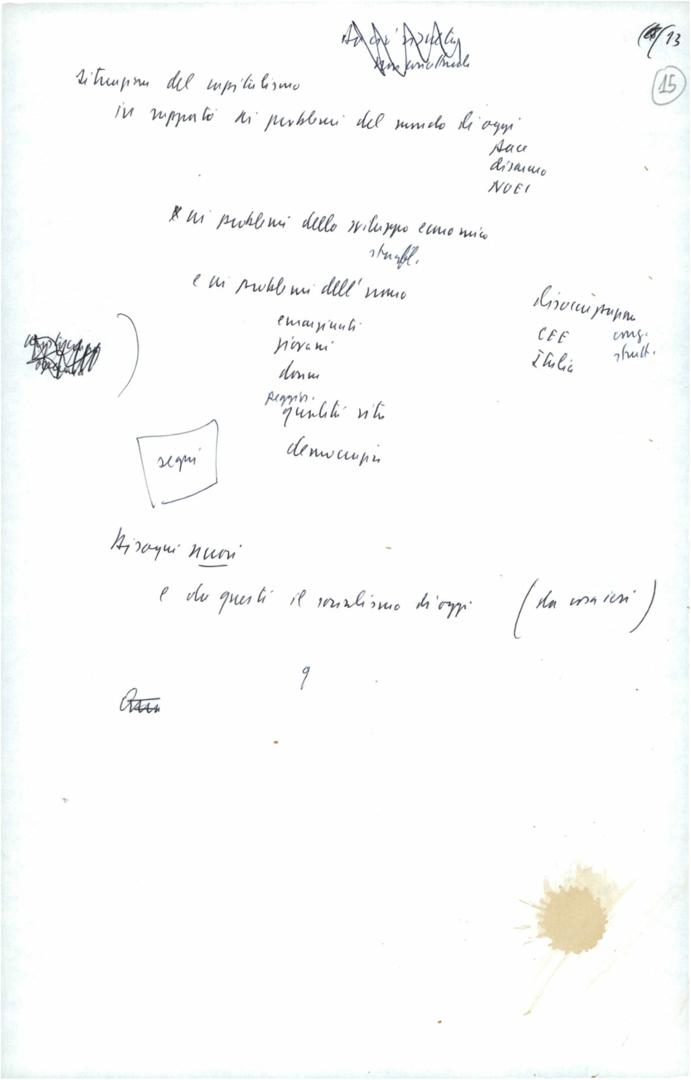 13
15
situazione del capitalismo
in rapporto ai problemi del mondo di oggi
pace
disarmo
NOEI
ai problemi dello sviluppo economico
e ai problemi dell'uomo
emarginati
giovani
donne
qualità vita
democrazia
disoccupazione
CEE cong.
Italia strutt.
segui
Bisogni nuovi
e da questi il socialismo di oggi (da cosa ieri)
9